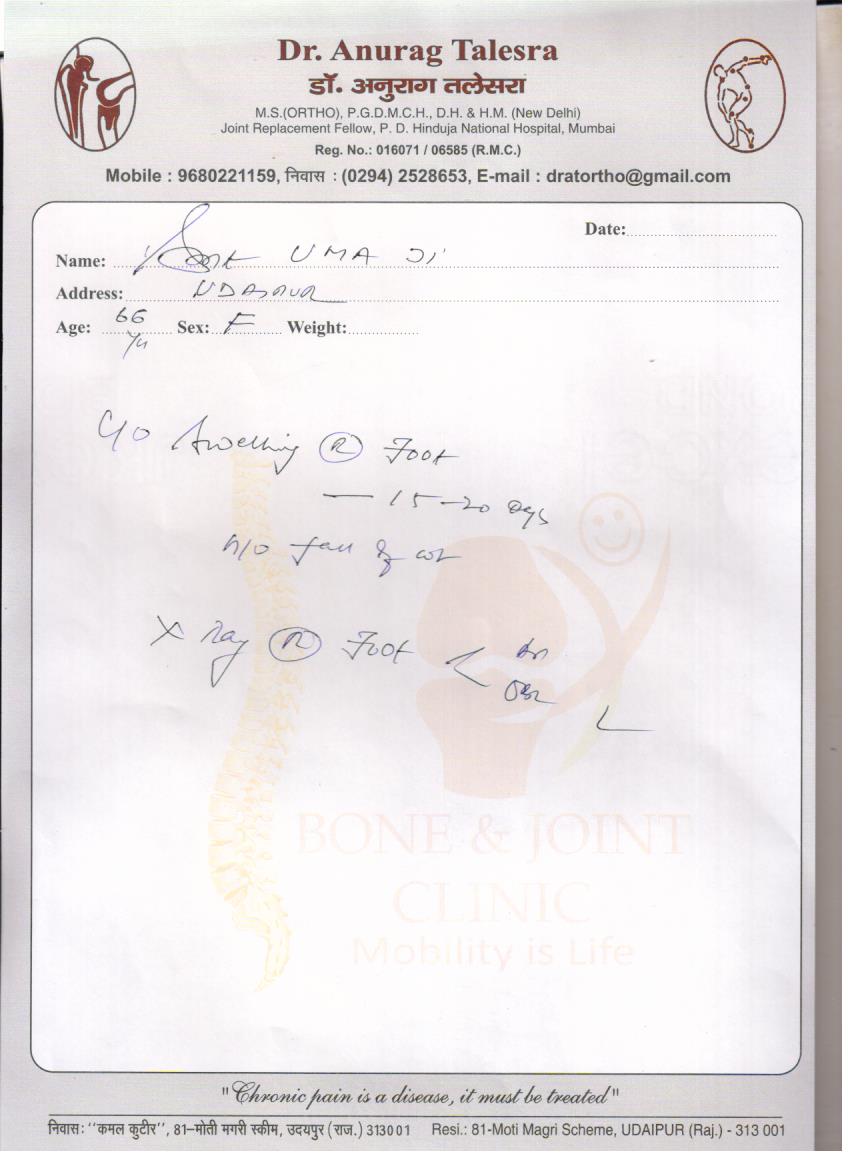 Dr. Anurag Talesra
डॉ. अनुराग तलेसरा
M.S.(ORTHO), P.G.D.M.C.H., D.H. & H.M. (New Delhi)
Joint Replacement Fellow, P. D. Hinduja National Hospital, Mumbai
Reg. No.: 016071 / 06585 (R.M.C.)
Mobile : 9680221159, निवास : (0294) 2528653, E-mail : dratortho@gmail.com
Date:
Name: UMA Ji
Address: UDAIPUR
Age: 66 Sex: F Weight:
C/O Swelling R Foot
— 15-20 Days
H/O fall
X Ray R Foot
BONE & JOINT
CLINIC
Mobility is Life
"Chronic pain is a disease, it must be treated"
निवास: "कमल कुटीर", 81–मोती मगरी स्कीम, उदयपुर (राज.) 313001 Resi.: 81-Moti Magri Scheme, UDAIPUR (Raj.) - 313 001